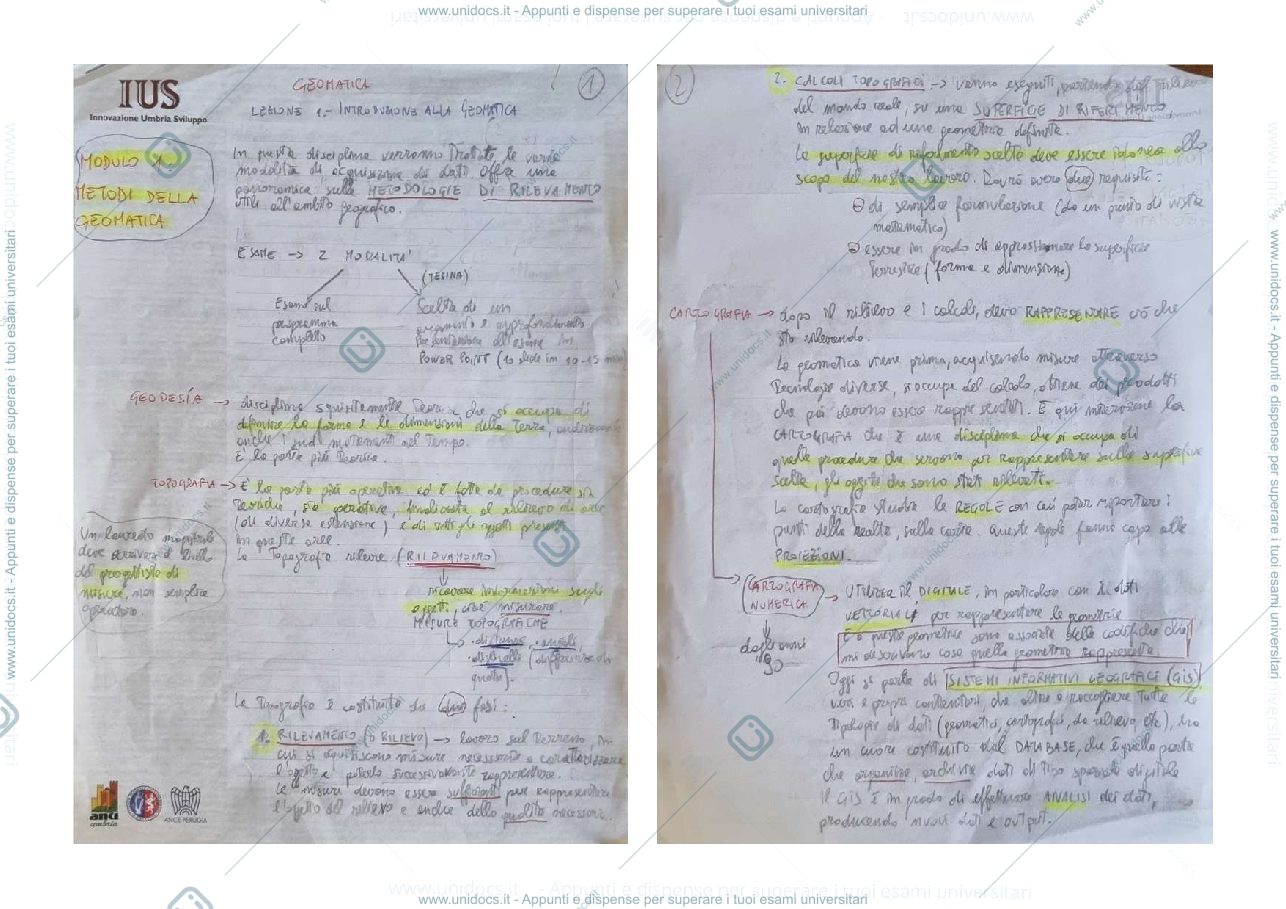 www.unidocs.it - Appunti e dispense per superare i tuoi esami universitari
IUS
Innovazione Umbria Sviluppo
GEOMATICA
1
LEZIONE 1 - INTRODUZIONE ALLA GEOMATICA
MODULO 1
METODI DELLA
GEOMATICA
In questa disciplina verranno trattate le varie
modalità di acquisizione dei dati. Offre una
panoramica sulle METODOLOGIE DI RILEVAMENTO
utili all'ambito geografico.
ESAME -> 2 MODALITA'
(TESINA)
Esame sul
programma
completo
Scelta di un
argomento e approfondimento
POWER POINT (10 slide in 10-15 min)
GEODESÍA -> disciplina squisitamente teorica che si occupa di
definire la forma e le dimensioni della Terra,
anche i suoi movimenti nel tempo.
È la parte più teorica.
TOPOGRAFIA -> È la parte più operativa ed è fatta da procedure sia
teoriche, sia operative, finalizzate al rilievo di aree
(di diverse estensione) e di tutti gli oggetti presenti
in queste aree.
La Topografia rileva (RILEVAMENTO)
ricavare informazioni sugli
oggetti, cioè misurare.
MISURE TOPOGRAFICHE
distanze angoli
dislivelli (differenze di
quota).
Un laureato magistrale
deve arrivare al livello
del progettista di
misure, non semplice
operatore.
La Topografia è costituita da due fasi:
1. RILEVAMENTO (o RILIEVO) -> lavoro sul terreno, in
cui si acquisiscono misure necessarie a caratterizzare
l'oggetto e poterlo successivamente rappresentare.
Le misure devono essere sufficienti per rappresentare
l'oggetto del rilievo e anche della qualità necessaria.
anci
umbria
ANCE PERUGIA
2
2. CALCOLI TOPOGRAFICI -> vanno eseguiti, partendo dal rilievo
del mondo reale, su una SUPERFICIE DI RIFERIMENTO
in relazione ad una geometria definita.
La superficie di riferimento scelta deve essere idonea allo
scopo del nostro lavoro. Dovrà avere due requisiti:
di semplice formulazione (da un punto di vista
matematico)
essere in grado di approssimare la superficie
terrestre (forma e dimensione)
CARTOGRAFIA -> dopo il rilievo e i calcoli, devo RAPPRESENTARE ciò che
sto rilevando.
La geomatica viene prima, acquisendo misure attraverso
tecnologie diverse, si occupa del calcolo, ottiene dei prodotti
che poi devono essere rappresentati. È qui interviene la
CARTOGRAFIA che è una disciplina che si occupa di
quelle procedure che servono per rappresentare sulla superficie
scelta, gli oggetti che sono stati rilevati.
La cartografia studia le REGOLE con cui poter riportare i
punti della realtà, sulla carta. Queste regole fanno capo alle
PROIEZIONI.
CARTOGRAFIA
NUMERICA -> Utilizza il DIGITALE, in particolare con i dati
VETTORIALI per rappresentare le geometrie
E a queste geometrie sono associate delle codifiche che
mi descrivono cosa quella geometria rappresenta.
dagli anni
'80
Oggi si parla di SISTEMI INFORMATIVI GEOGRAFICI (GIS)
veri e propri contenitori che oltre a raccogliere tutte le
tipologie di dati (geometrici, cartografici, da rilievo, etc), ha
un cuore costituito dal DATABASE, che è quella parte
che organizza, archivia dati di tipo spaziale digitale
Il GIS è in grado di effettuare ANALISI dei dati,
producendo nuovi dati e output.
www.unidocs.it - Appunti e dispense per superare i tuoi esami universitari